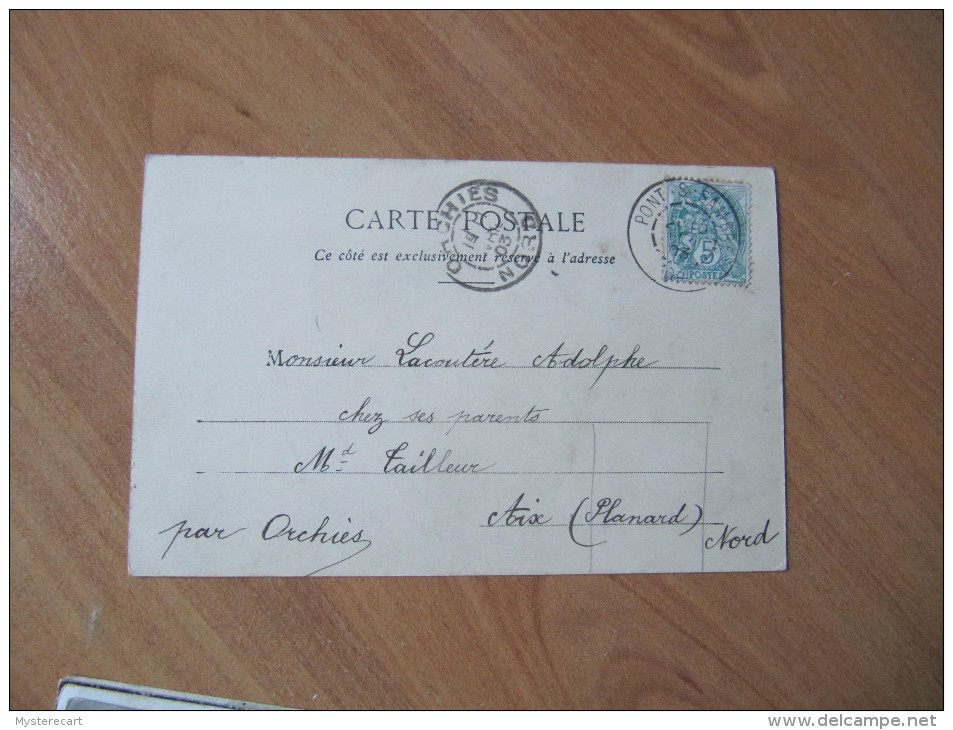 CARTE POSTALE
Ce côté est exclusivement réservé à l'adresse
ORCHIES
NORD
03
PONT-S-
5
POSTES
Monsieur Lacoutére Adolphe
chez ses parents
Md Tailleur
Aix (Planard)
par Orchies
Nord
Mysterecart
www.delcampe.net